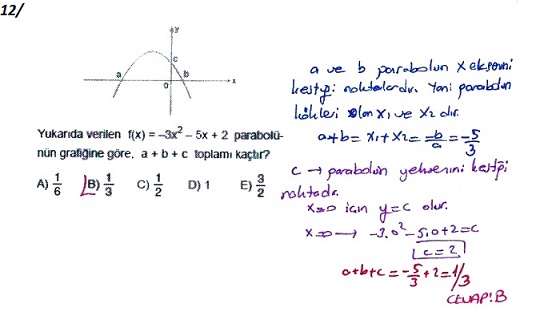 12/
y
c
a
0
b
x
Yukarıda verilen f(x) = –3x² – 5x + 2 parabolü-
nün grafiğine göre, a + b + c toplamı kaçtır?
A) 1/6 B) 1/3 C) 1/2 D) 1 E) 3/2
a ve b parabolün x eksenini
kestiği noktalardır. Yani parabolün
kökleri olan x₁ ve x₂ dir.
a+b = x₁+x₂ = -b/a = -5/3
c → parabolün y eksenini kestiği
noktadır.
x=0 için y=c olur.
x=0 → -3.0²-5.0+2=c
c=2
a+b+c = -5/3+2=1/3
CEVAP:B